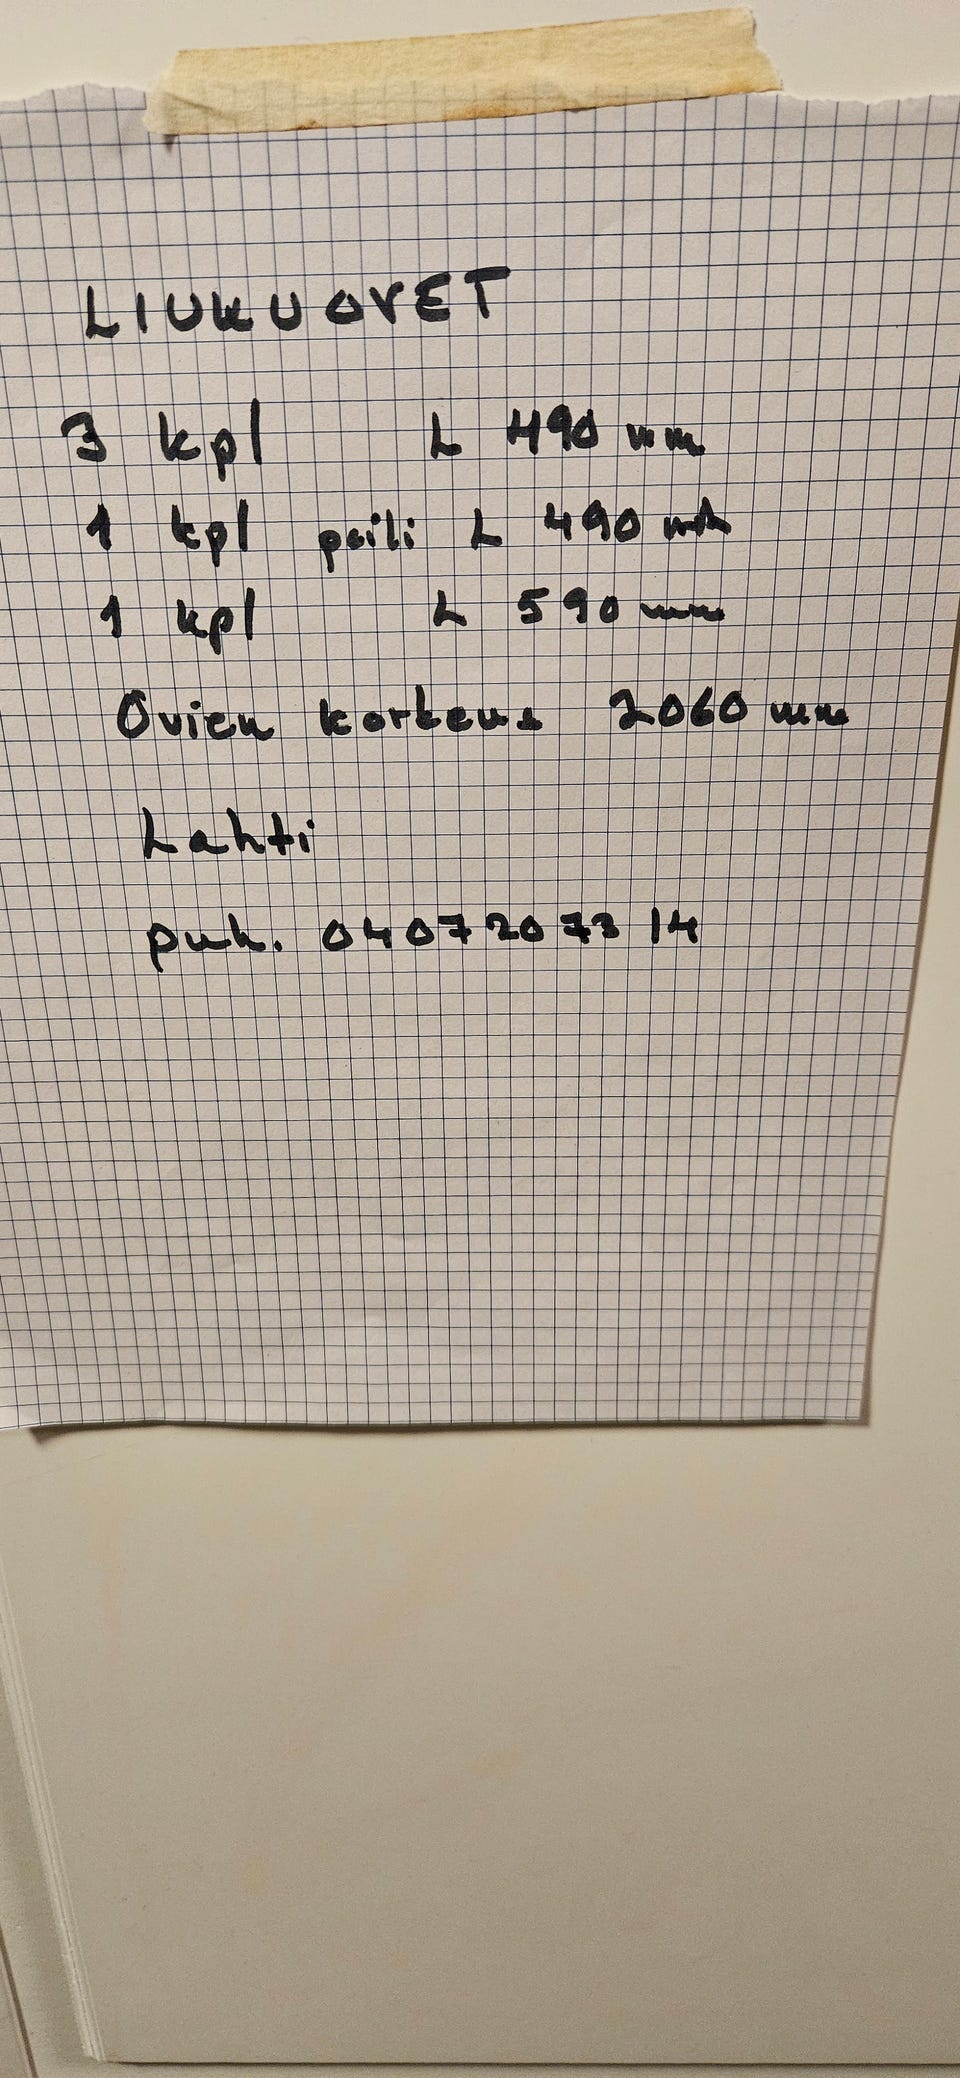 LIUKUOVET
3 kpl L 490 mm
1 kpl peili L 490 mm
1 kpl L 590 mm
Ovien korkeus 2060 mm
Lahti
puh. 0407207314